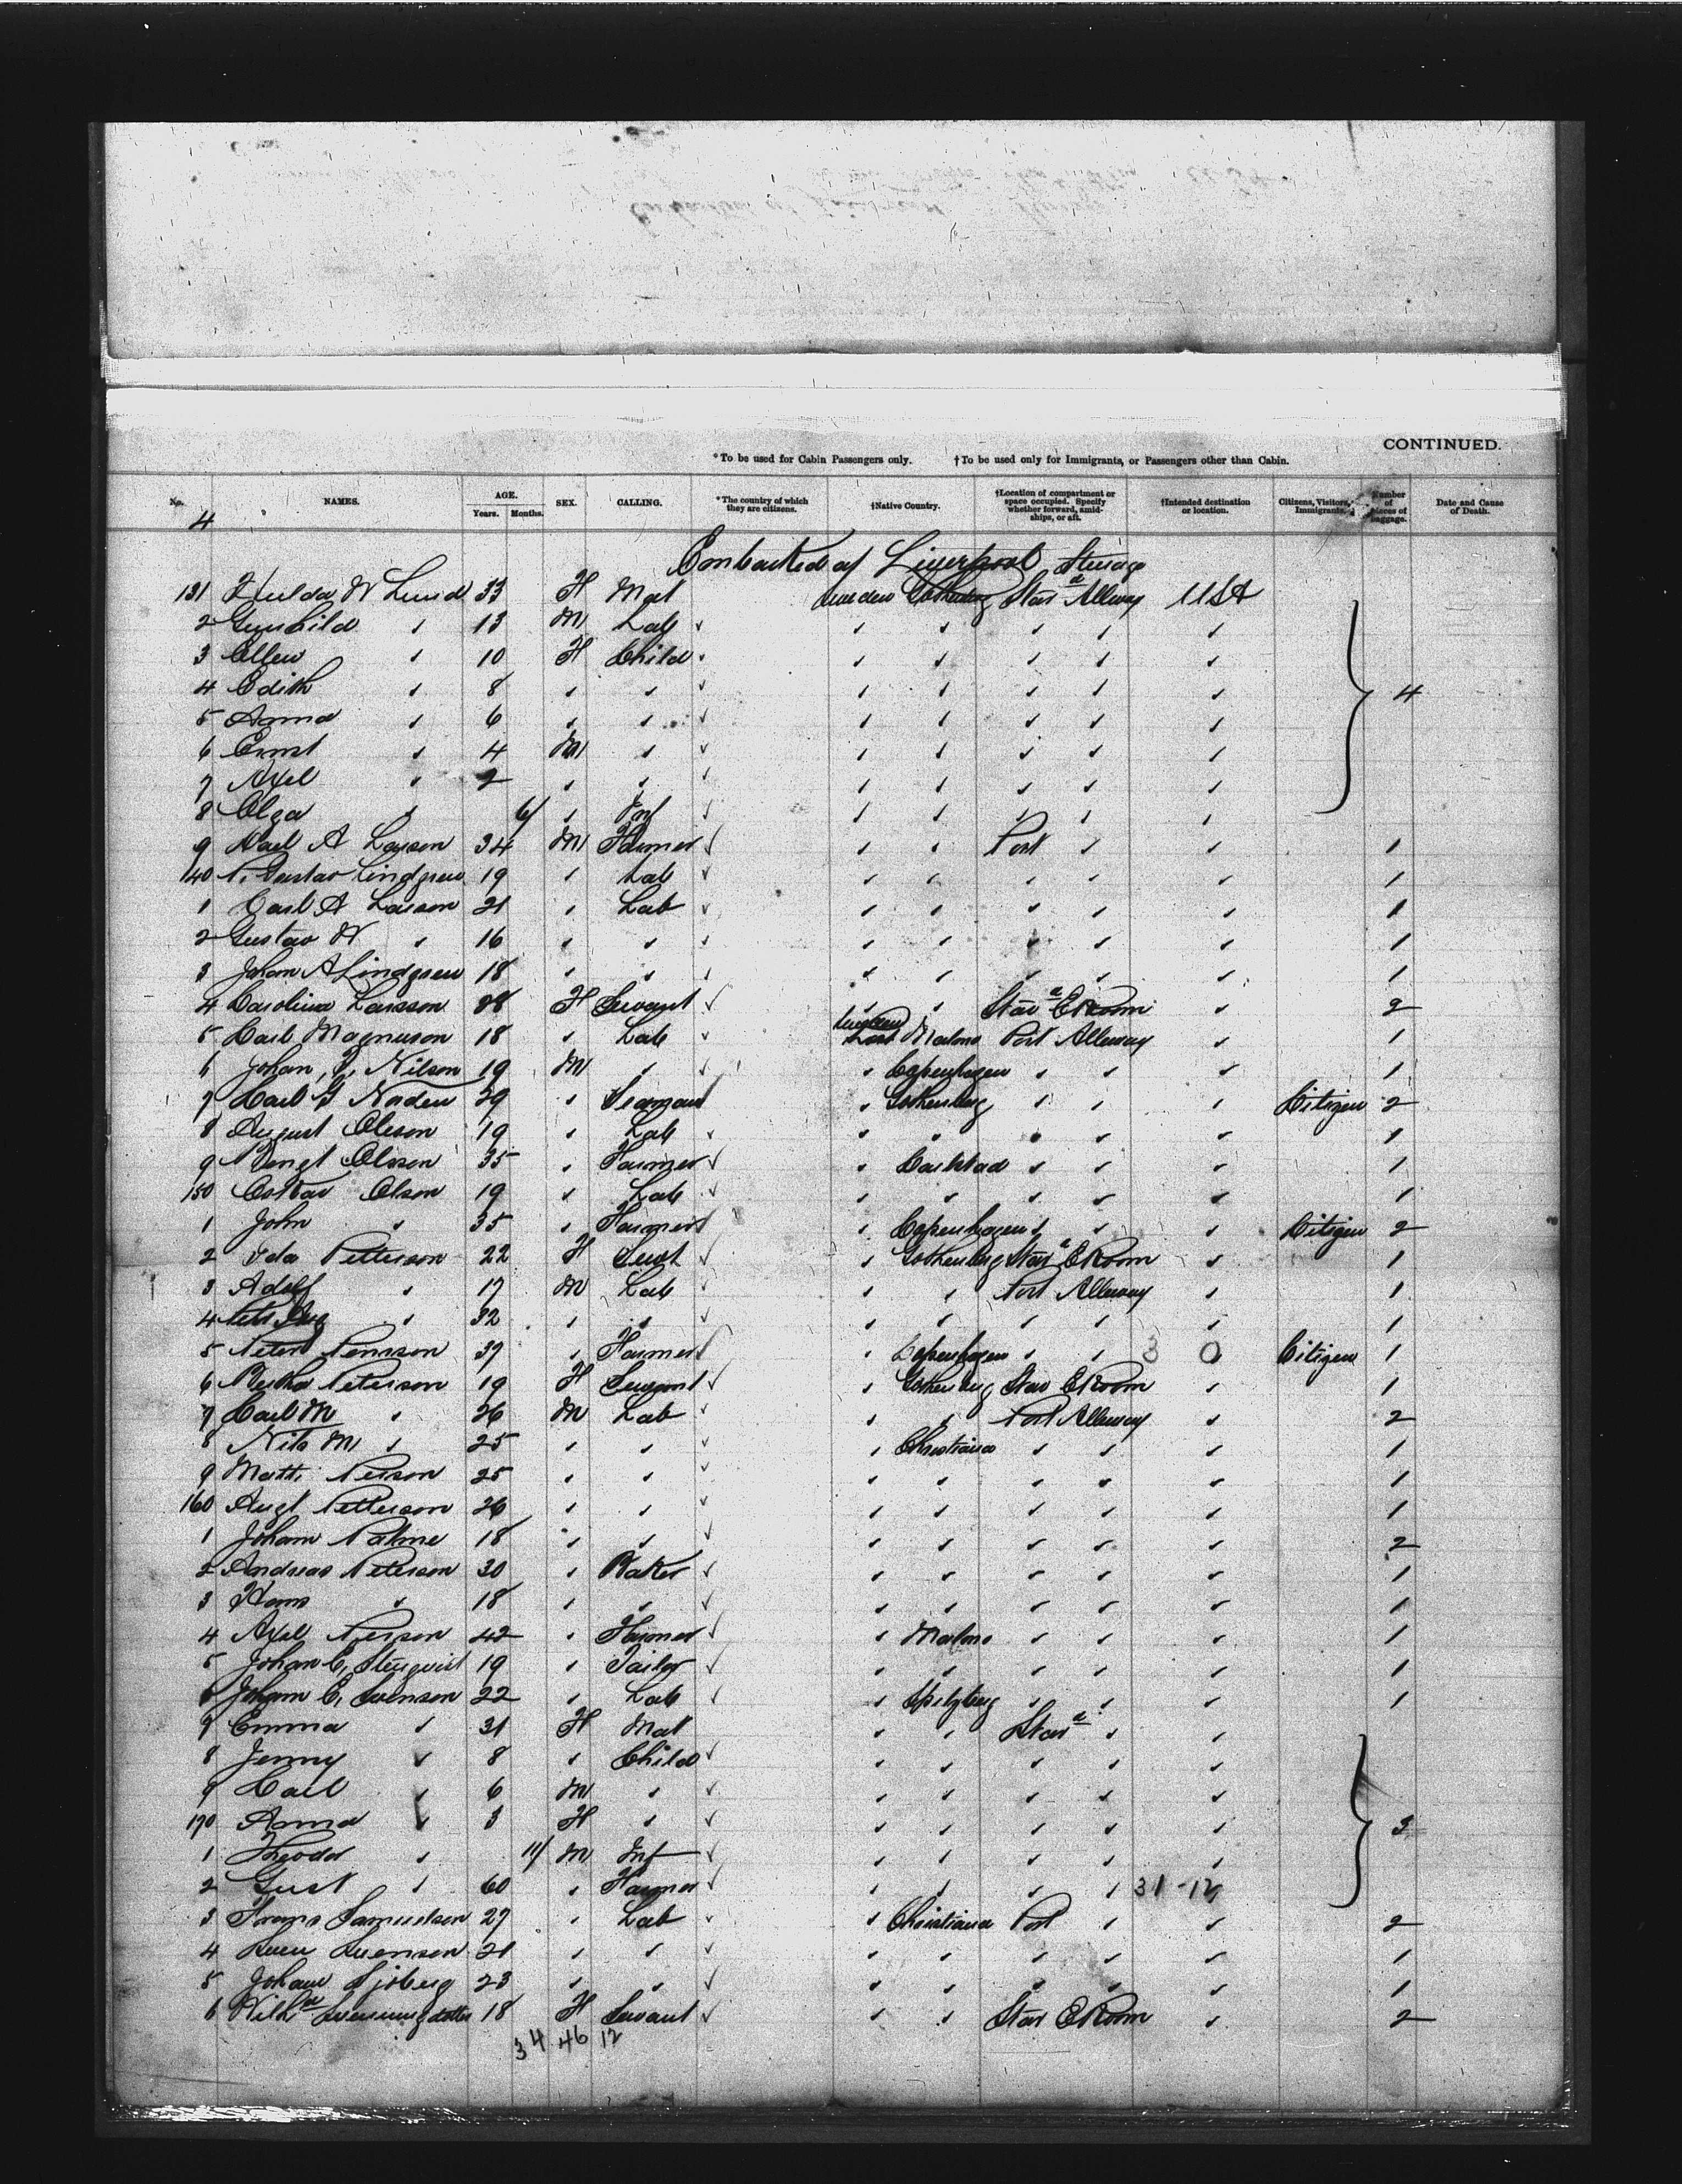 CONTINUED.
*To be used for Cabin Passengers only. †To be used only for Immigrants, or Passengers other than Cabin.
No. NAMES. AGE. Years. Months. SEX. CALLING. *The country of which they are citizens. †Native Country. †Location of compartment or space occupied. Specify whether forward, amidships, or aft. †Intended destination or location. Citizens, Visitors, Immigrants. Number of pieces of baggage. Date and Cause of Death.
4
Embarked at Liverpool Steerage
131 Hulda W Lund 33 F Mat Sweden Gothenburg Star^d Alleway USA
2 Gunhild " 13 M Lab " " " " " "
3 Ellen " 10 F Child " " " " "
4 Edith " 8 " " " " " " " 4
5 Anna " 6 " " " " " " "
6 Ernst " 4 M " " " " " "
7 Axel " 2 " " " " " " "
8 Olga " 6/ " Inf " " " " "
9 Carl A Larson 34 M Farmer " " Port " " 1
140 P. Gustav Lindgren 19 " Lab " " " " " 1
1 Carl A Larson 21 " Lab " " " " " 1
2 Gustav W " 16 " " " " " " " 1
3 Johan A Lindgren 18 " " " " " " " 1
4 Carolina Larsson 28 F Servant " " Star^d E Room " 2
5 Carl Magnuson 18 " Lab Sweden Malmo Port Alleway " 1
6 Johan, F, Nilson 19 M " " Copenhagen " " " 1
7 Carl G Norden 29 " Seaman " Gothenburg " " " Citizen 2
8 August Oleson 19 " Lab " " " " " 1
9 Bengt Olsson 35 " Farmer " Carlstad " " " 1
150 Oskar Olson 19 " Lab " " " " " 1
1 John " 35 " Farmer " Copenhagen " " " Citizen 2
2 Ida Petterson 22 F Servt " Gothenburg Star^d E Room " 1
3 Adolf " 17 M Lab " " Port Alleway " 1
4 " 32 " " " " " " " 1
5 Peter Pearson 37 " Farmer " Copenhagen " " 3 0 " Citizen 1
6 Bertha Peterson 19 F Servant " Gothenburg Star E Room " 1
7 Carl M " 26 M Lab " " Port Alleway " 2
8 Nils M " 25 " " " Christiana " " " 1
9 Matti Person 25 " " " " " " " 1
160 Augt Petterson 26 " " " " " " " 1
1 Johan Palme 18 " " " " " " " 2
2 Andreas Peterson 30 " Baker " " " " " 1
3 Hans " 18 " " " " " " " 1
4 Axel Person 42 " Farmer " Malmo " " " 1
5 Johan C, Stenqvist 19 " Tailor " " " " " 1
6 Johan C, Svenson 22 " Lab " " " " 1
7 Emma " 31 F Mat " " Star^d " "
8 Jenny " 8 " Child " " " " "
9 Carl " 6 M " " " " " "
170 Anna " 3 F " " " " " " 3
1 Theodd " 11/ M Inf " " " " "
2 Gust " 60 " Farmer " " " " 31-12
3 Frans Samuelson 27 " Lab " Christiana Port " " 2
4 Sven Svenson 21 " " " " " " " 1
5 Johan Sjoberg 23 " " " " " " " 1
6 Wilh^m 18 F Servant " " Star E Room " 2
34 46 12